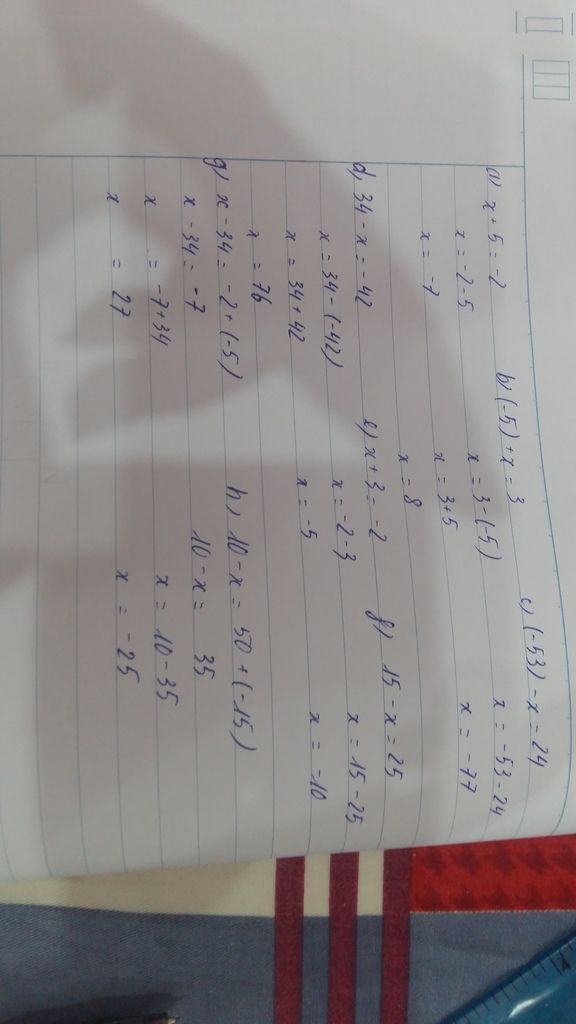 a) x + 5 = -2
x = -2 - 5
x = -7
b) (-5) + x = 3
x = 3 - (-5)
x = 3 + 5
x = 8
c) (-53) - x = 24
x = -53 - 24
x = -77
d) 34 - x = -42
x = 34 - (-42)
x = 34 + 42
x = 76
e) x + 3 = -2
x = -2 - 3
x = -5
f) 15 - x = 25
x = 15 - 25
x = -10
g) x - 34 = -2 + (-5)
x - 34 = -7
x = -7 + 34
x = 27
h) 10 - x = 50 + (-15)
10 - x = 35
x = 10 - 35
x = -25